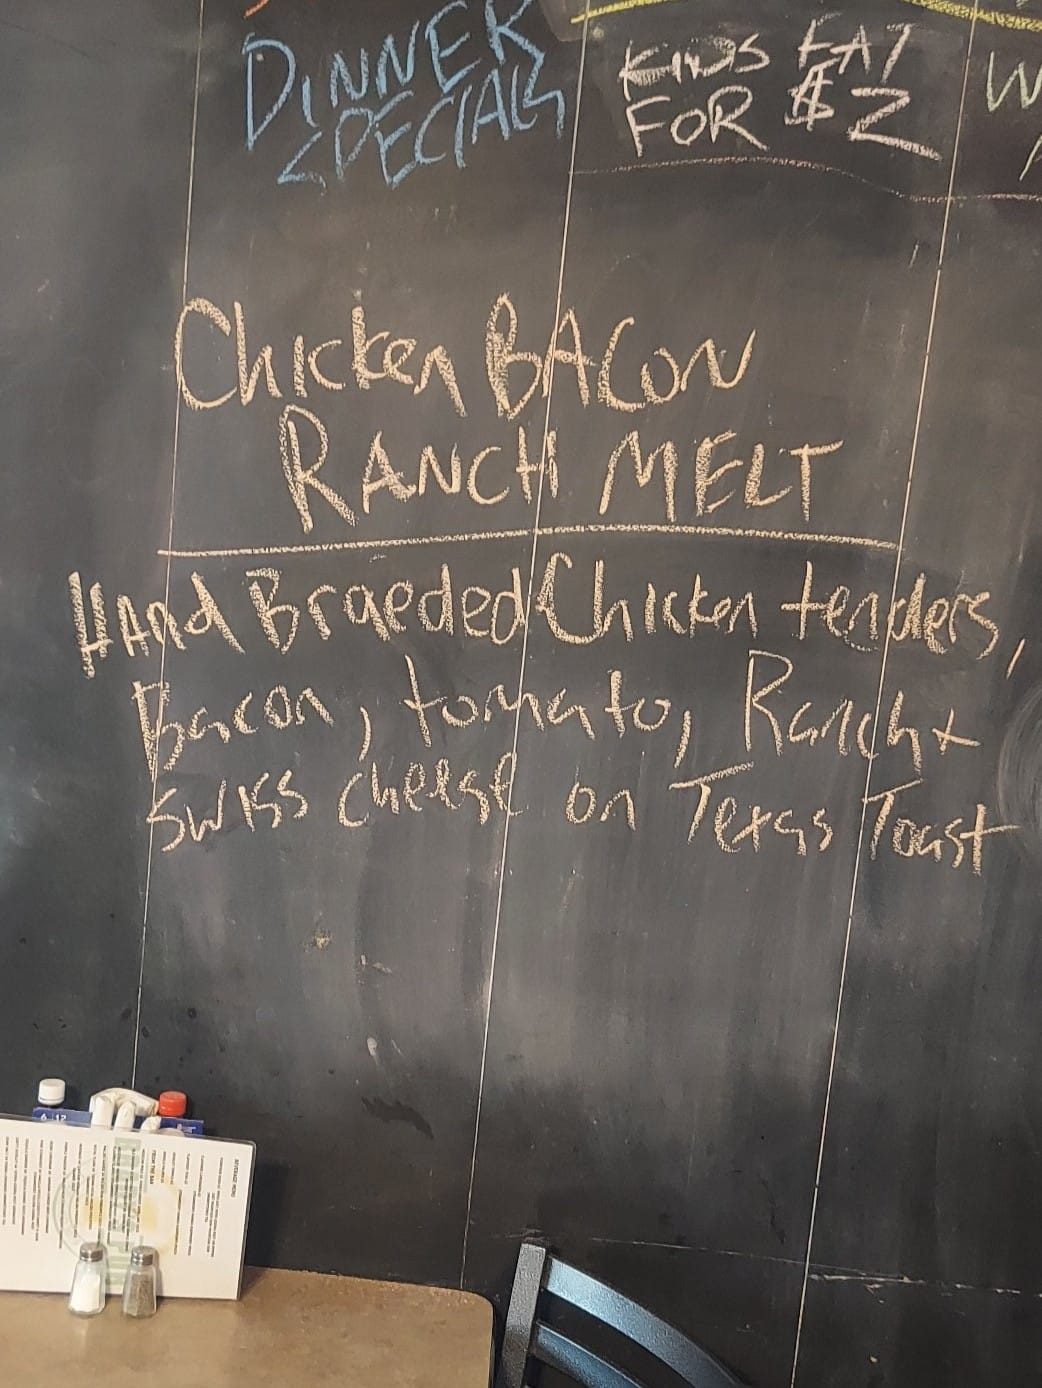 DINNER
SPECIALS
KIDS EAT
FOR $2
W
Chicken BACON
RANCH MELT
HAnd Braeded Chicken tenders,
Bacon, tomato, Ranch +
swiss cheese on Texas Toast